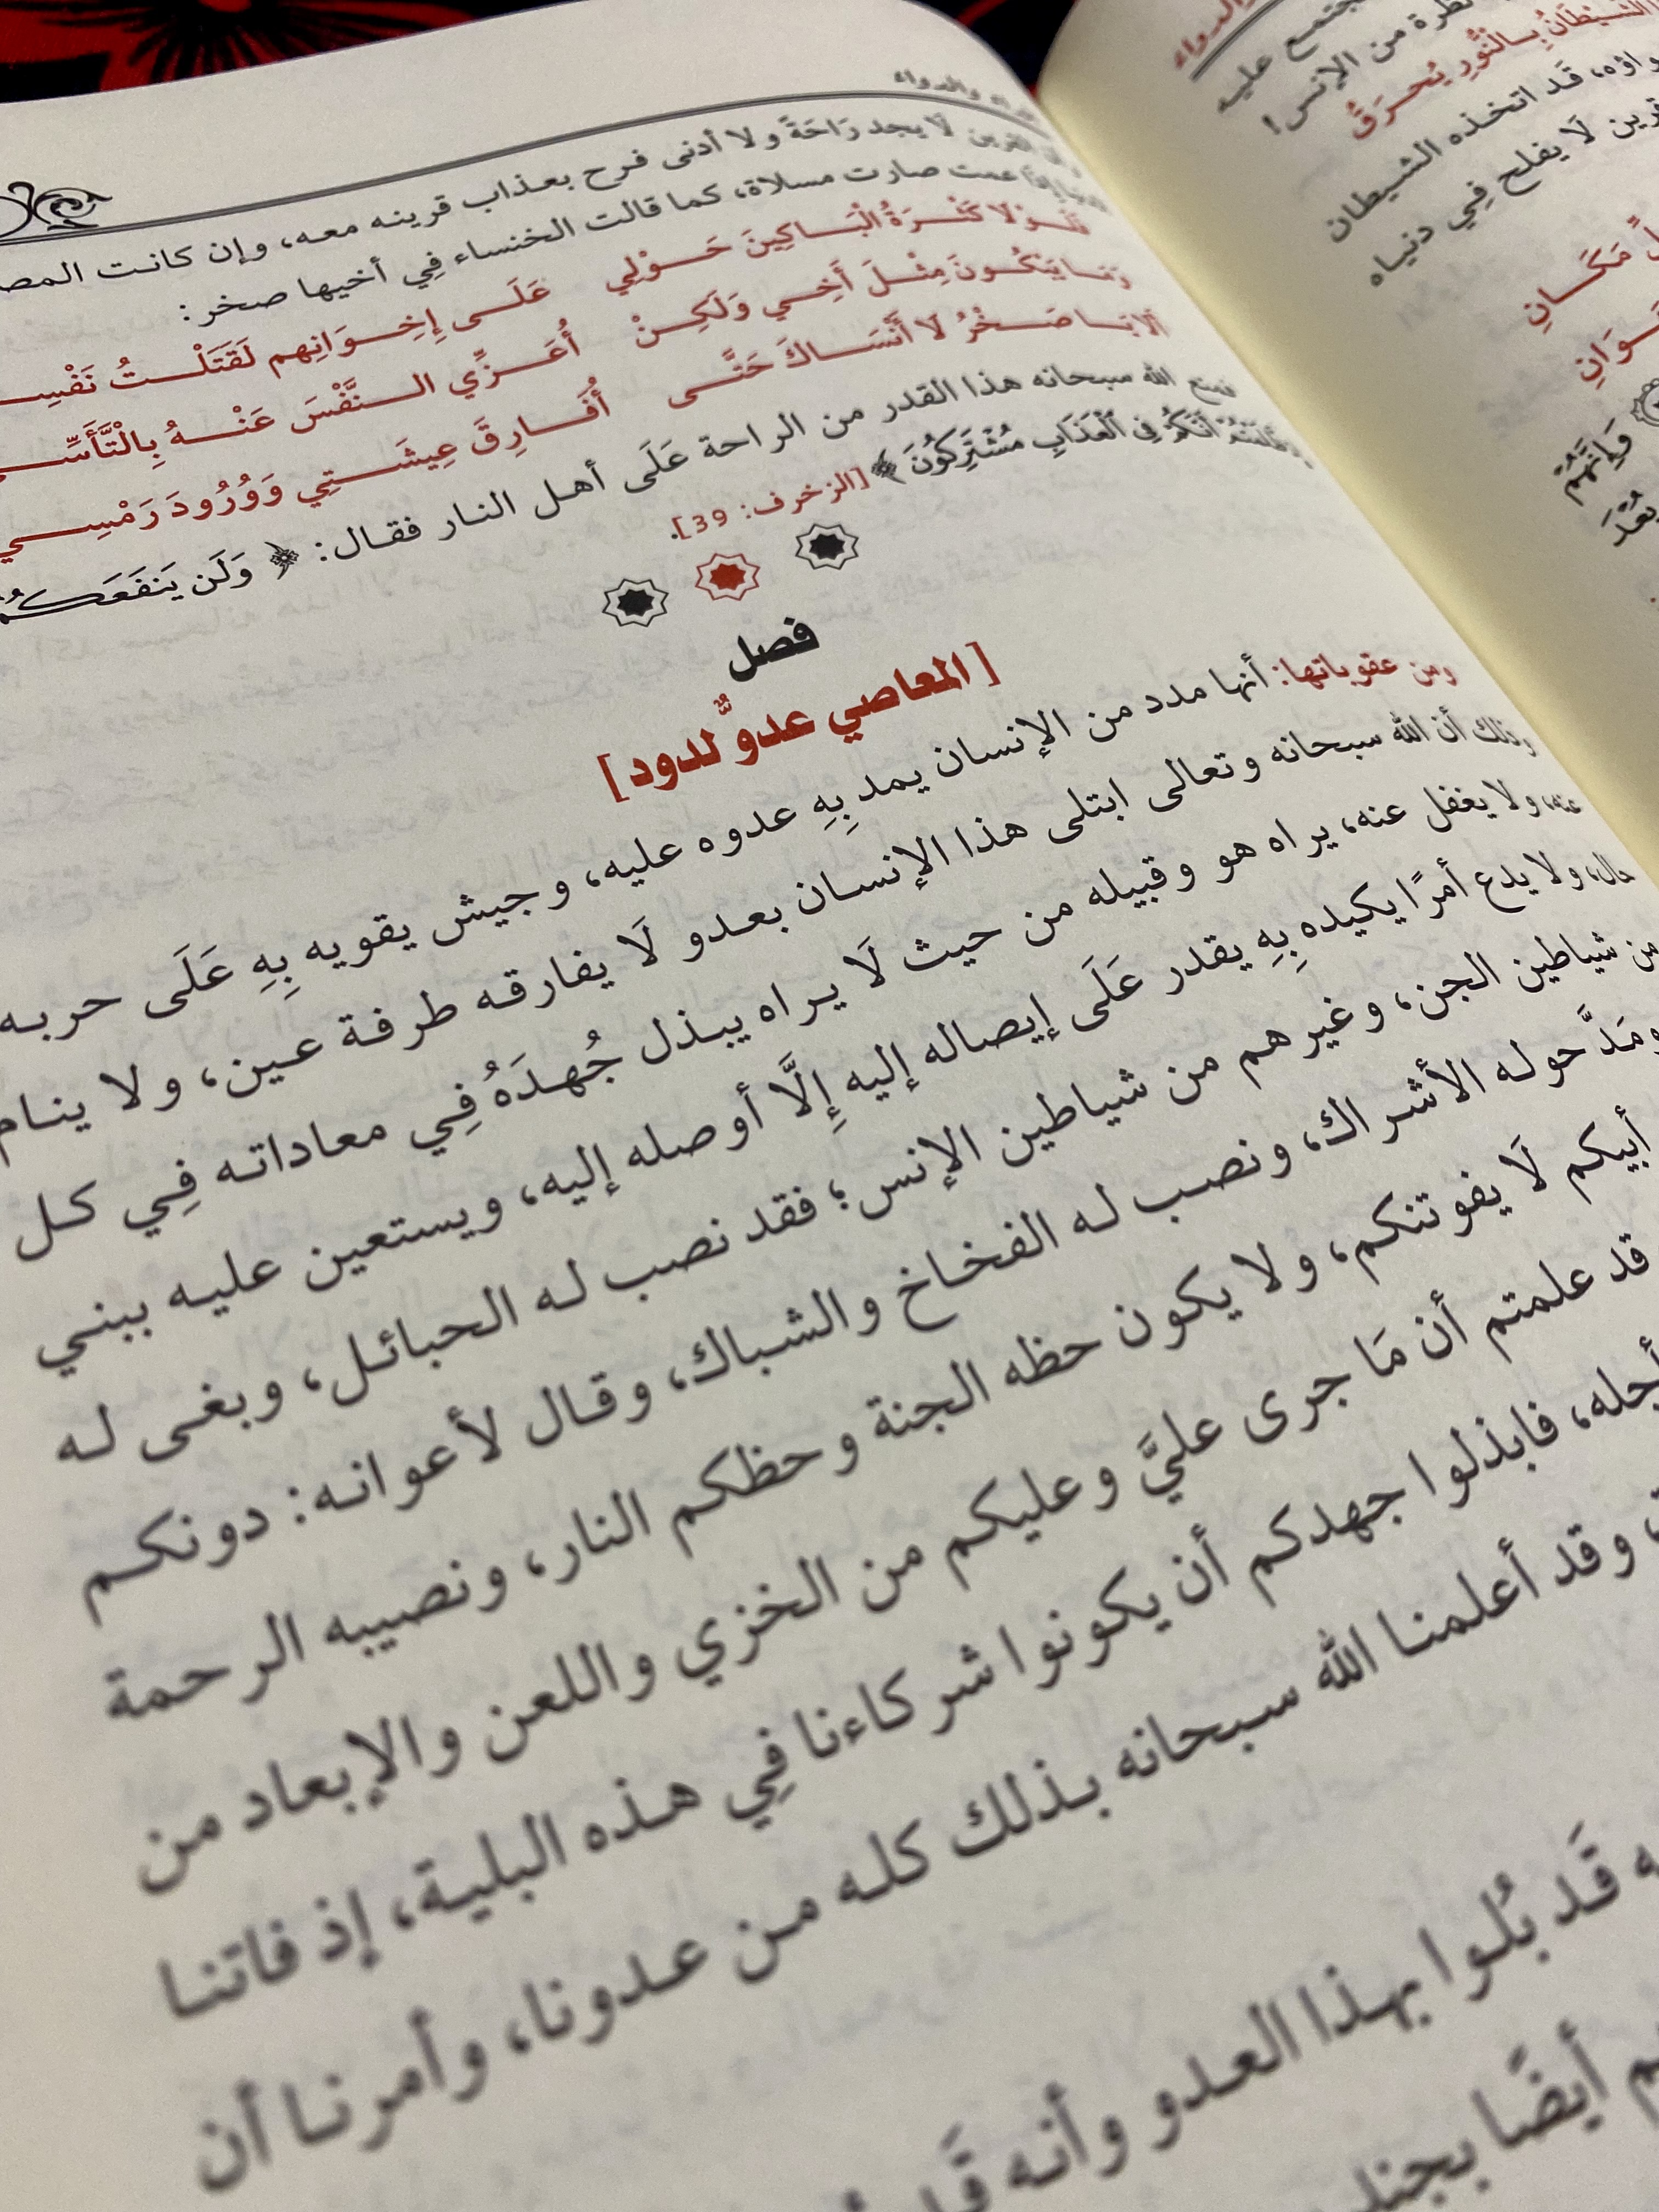 والدواء
القرين لَا يجد رَاحَةً ولا أدنى فرح بعذاب قرينه معه، وإن كانت
عمت صارت مسلاة، كما قالت الخنساء فِي أخيها صخر:
فَلَوْلَا كَثْرَةُ الْبَاكِينَ حَوْلِي عَلَى إِخِوَانِهِم لَقَتَلْتُ نَفْسِي
وَمَا يَبْكُونَ مِثْلَ أَخِي وَلَكِنْ أُعَزِّي النَّفْسَ عَنْهُ بِالْتَّأَسِّي
أَلَا يَا صَخْرُ لَا أَنْسَاكَ حَتَّى أُفَارِقَ عِيشَتِي وَوُرُودَ رَمْسِي
فمنع الله سبحانه هذا القدر من الراحة عَلَى أهل النار فقال: ﴿ وَلَن يَنفَعَكُمُ
أَنَّكُمْ فِي ٱلْعَذَابِ مُشْتَرِكُونَ ﴾ [الزخرف: 39].
فصل
[المعاصي عدوٌّ لدود]
ومن عقوباتها: أنها مدد من الإنسان يمد بِهِ عدوه عليه، وجيش يقويه بِهِ عَلَى حربه
وذلك أن الله سبحانه وتعالى ابتلى هذا الإنسان بعدو لَا يفارقه طرفة عين، ولا ينام
عنه، ولا يغفل عنه، يراه هو وقبيله من حيث لَا يراه يبذل جُهدَهُ فِي معاداته فِي كل
حال، ولا يدع أمرًا يكيده بِهِ يقدر عَلَى إيصاله إليه إِلَّا أوصله إليه، ويستعين عليه ببني
من شياطين الجن، وغيرهم من شياطين الإنس؛ فقد نصب له الحبائل، وبغى له
ومَدَّ حوله الأشراك، ونصب له الفخاخ والشباك، وقال لأعوانه: دونكم
أبيكم لَا يفوتنكم، ولا يكون حظه الجنة وحظكم النار، ونصيبه الرحمة
قد علمتم أن مَا جرى عليَّ وعليكم من الخزي واللعن والإبعاد من
أجله، فابذلوا جهدكم أن يكونوا شركاءنا فِي هذه البلية، إذ فاتنا
وقد أعلمنا الله سبحانه بذلك كله من عدونا، وأمرنا أن
قَد بُلوا بهذا العدو وأنه قَد
أيضًا بجند
والدواء
يجتمع عليه
نظرة من الإنس!
الشَّيْطَانُ بِالْنُّورِ يُحْرَقُ
قَد اتخذه الشيطان
لَا يفلح فِي دنياه
مَكَانِ
وَإِنَّهُمْ
بُعْدَ